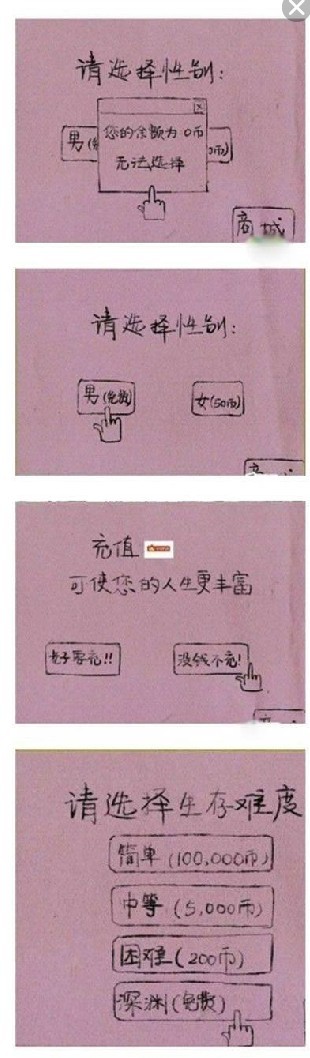 请选择性别:
男(免
您的余额为0币
无法选择
币)
商城
请选择性别:
男(免费)
女(50币)
充值
可使您的人生更丰富
好要充!!
没钱不充!
请选择生存难度
简单(100,000币)
中等(5,000币)
困难(200币)
深渊(免费)